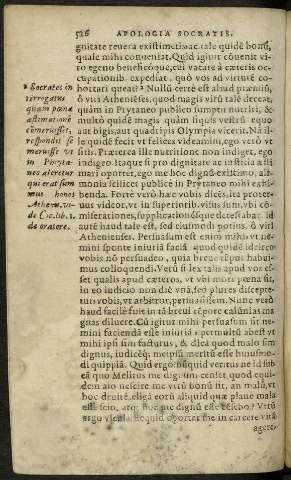 526 APOLOGIA SOCRATIS.
gnitate reuera existimetis: ac tale quidẽ bonũ,
quale mihi conueniat. Quid igitur cõuenit vi-
ro egeno beneficóque, cui vacare à cæteris oc-
cupationib. expediat, quò vos ad virtutẽ co-
hortari queat? Nullũ certè est aliud præmiũ,
ô viri Athenienses, quod magis virũ talẽ deceat,
quàm in Prytaneo publico sumptu nutriri, &
multò quidẽ magis quàm siquis vestrũ equo
aut bigis, aut quadrigis Olympia vicerit. Nã il-
le quidẽ fecit vt felices videamini, ego verò vt
sitis. Præterea ille nutritione non indiget, ego
indigeo. Itaque si pro dignitate ac iustitia æsti
mari oportet, ego me hoc dignũ existimo, ali-
monia scilicet publicè in Prytaneo mihi exhi-
benda. Fortè verò hæc vobis dicẽs, ita proter-
uus videor, vt in superiorib. visus sum, vbi cõ-
miserationes, supplicationésque detestabar. id
autẽ haud tale est, sed eiusmodi potius. ô viri
Athenienses. Persuasum est enim mihi vt ne-
mini sponte iniuriã faciã. quod quidẽ idcirco
vobis nõ persuadeo, quia breui tẽpus habui-
mus colloquendi. Verũ si lex talis apud vos es-
set qualis apud cæteros, vt vbi mors pœna sit,
in eo iudicio non diẽ vnã, sed plures discepte-
tur: vobis, vt arbitror, persuasissem. Nunc verò
haud facilè fuit in tã breui tẽpore calũnias ma
gnas diluere. Cũ igitur mihi persuasum sit ne-
mini faciendã esse iniuriã: permultũ abest vt
mihi ipsi sim facturus, & dicã quod malo sim
dignus, iudicẽq; meipsũ meritũ esse huiusmo-
di quippiã. Quid ergo?
* Socrates in
terrogatus
quam pœnæ
æstimationẽ
cõmeruisset,
respondit se
meruisse vt
in Pryta-
neo aleretur
qui erat sum
mus honos
Athenis. vi-
de Cic. lib. 1.
de oratore.
agere.